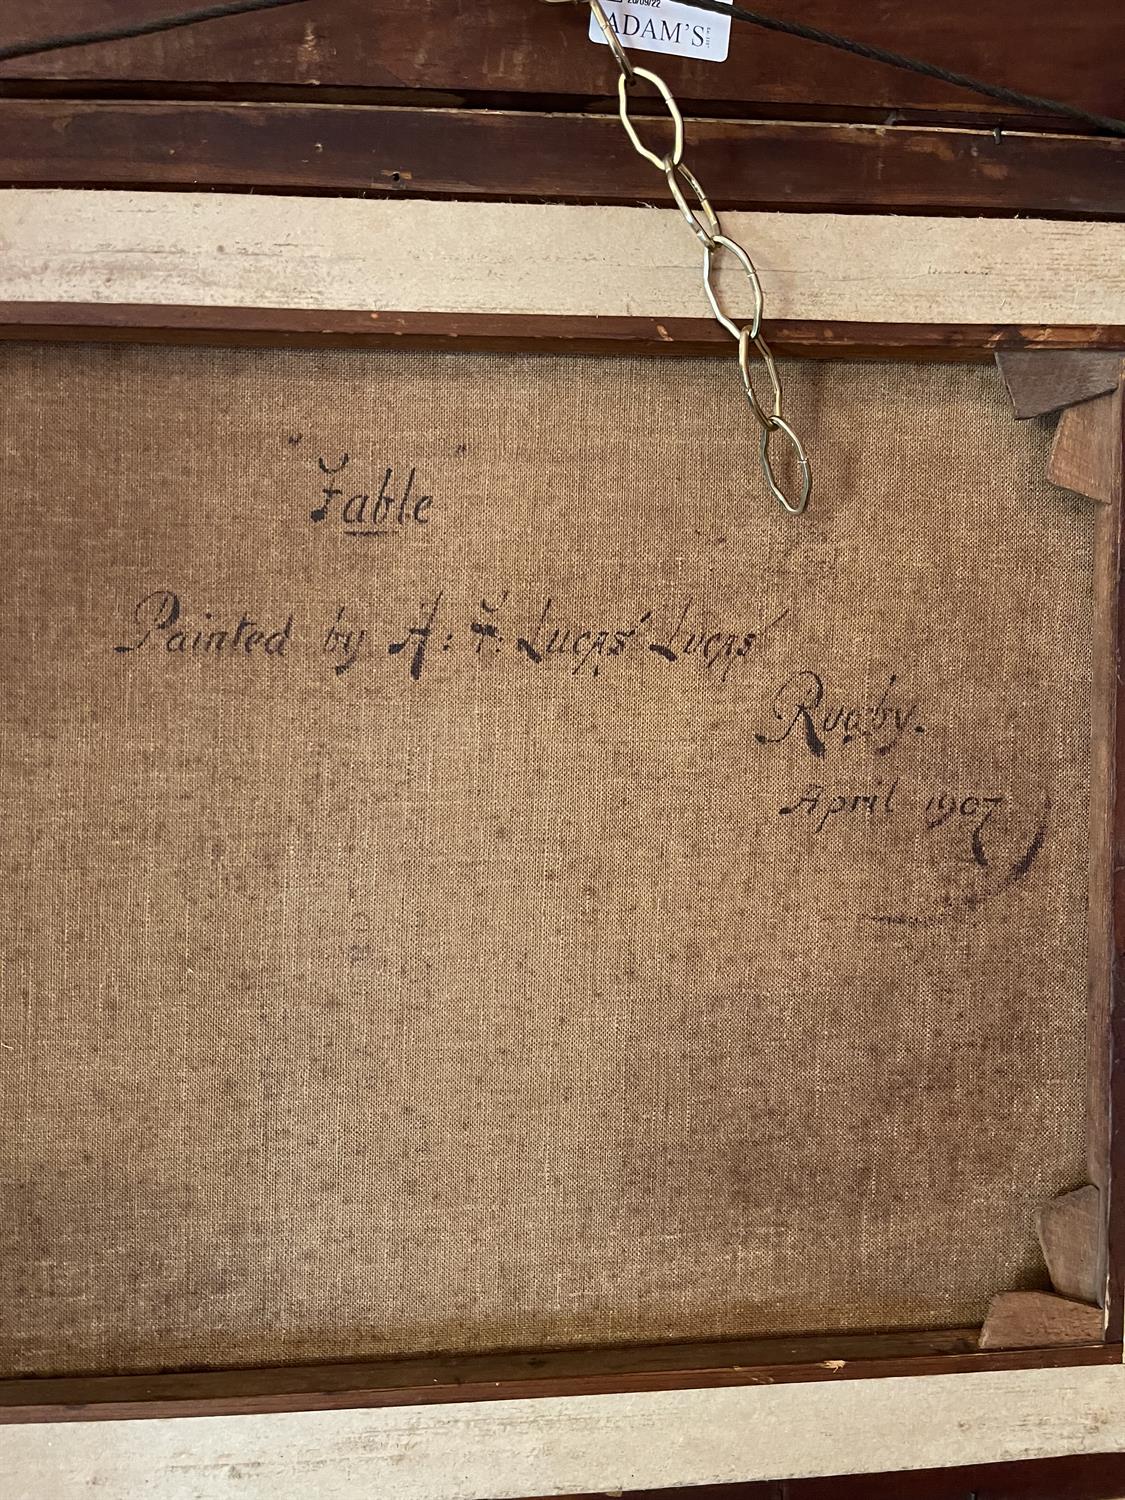 20/09/22
ADAM'S
"Fable"
Painted by A: F: Lucas Lucas
Rugby.
April 1907